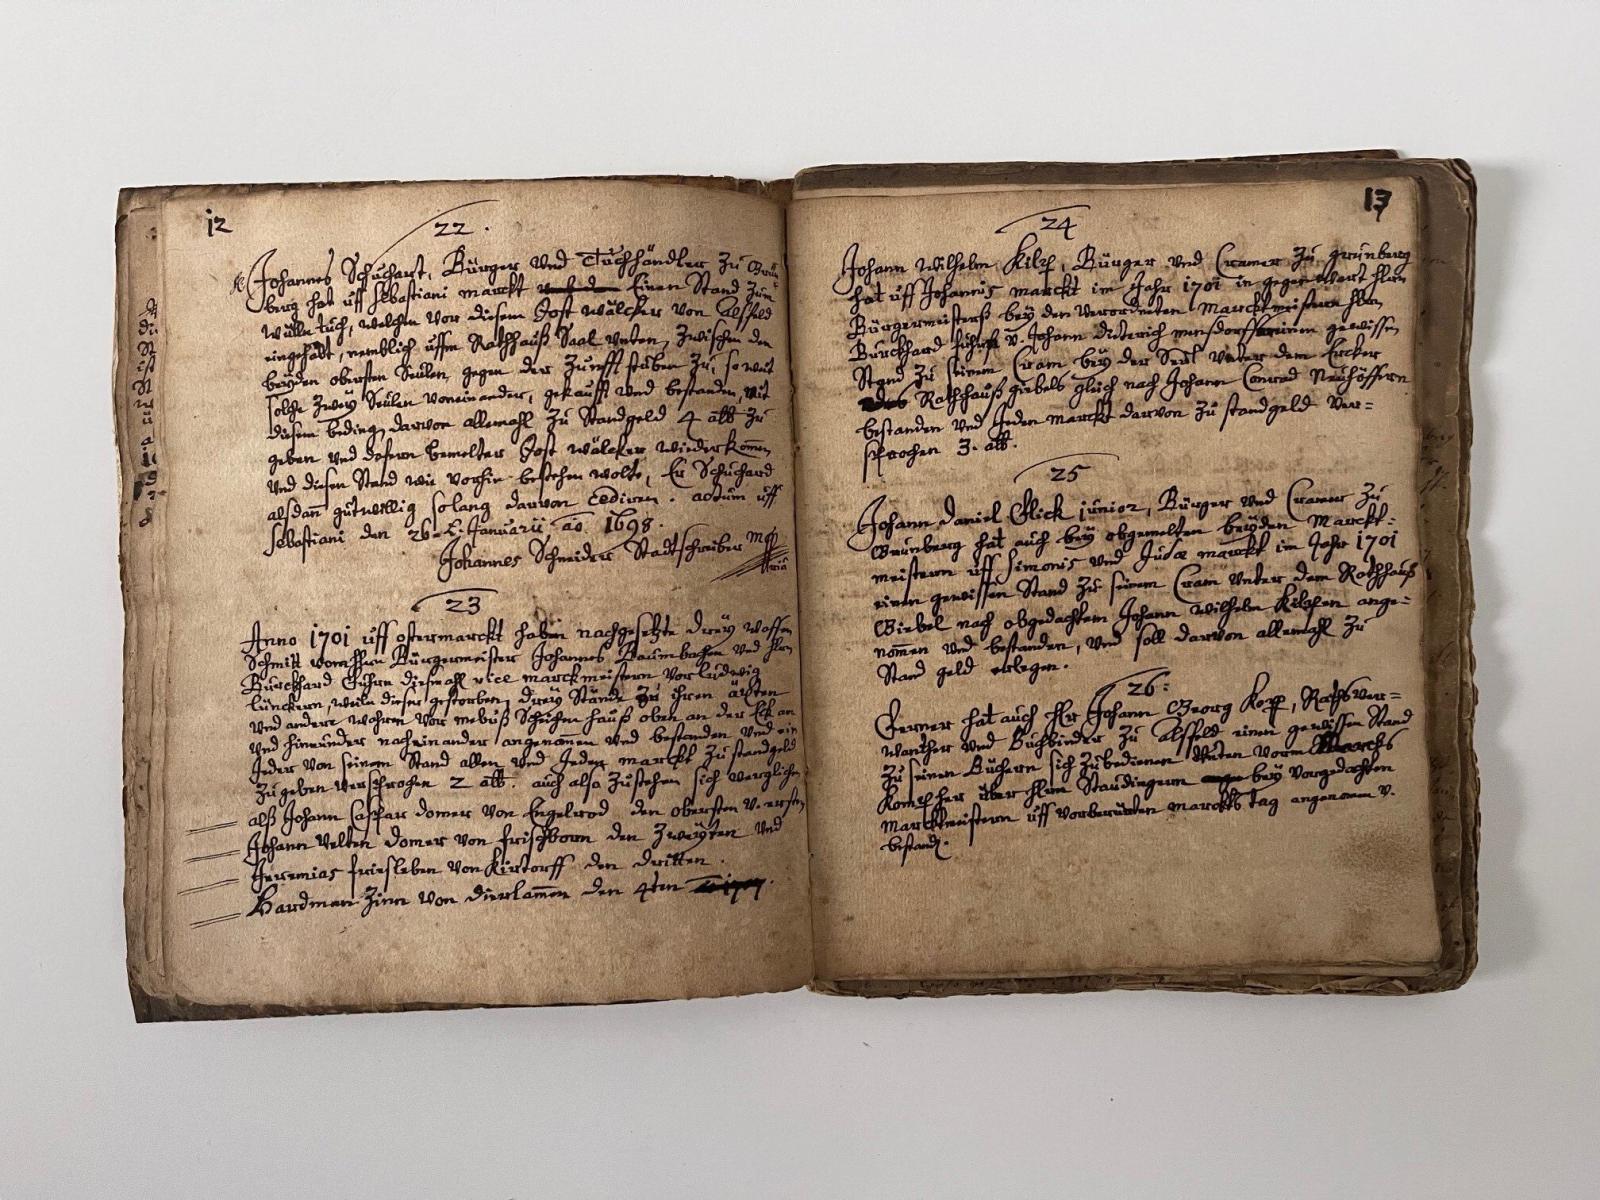 12
22.
Johannes Schuchart, Bürger und Tuchhändler zu Grün
berg hat uff Sebastiani marckt einen Stand zum
wüllen tuch, welchen vor diesem Jost Wälcker von Alsfeld
eingehabt, nemblich uffm Rathhauß Saal unten, zwischen den
beyden obersten Seulen, gegen der Zunfft stuben zu, so weit
solche zwey Seulen voneinander, gekaufft und bestanden, mit
diesem beding, darvon allemahl zu Standgeld 4 alb zu
geben und dofern bemelter Jost Wälcker wiederkom̄en
und diesen Stand wie vorhin bestehen wolte, Er Schuchard
alsdan̄ gutwillig solang darvon cediren. actum uff
Sebastiani den 26. Januarii ao 1698.
Johannes Schneider Stadtschreiber
23
Anno 1701 uff ostermarckt haben nachgesetzte drey waffen
Schmitt vom Hrn Bürgermeister Johannes Baumbachen und Hrn
Burckhard Führn diesmahl vice marckmeistern vor Ludwig
Lünckern, weiln dieser gestorben, drey Stände zu ihren äxten
und andern wahren vor mebuß Scheuhen hauß oben an der Eck an
und hinunder nacheinander angenom̄en und bestanden und ein
Jeder von seinem Stand allen und jeden marckt zu standgeld
zu geben versprochen 2 alb. auch also zustehen sich verglichen
alß Johann Caspar Domer von Engelrod den obersten v. ersten
Johann Velten Domer von frischborn den zweyten und
Jeremias friesleben von Kirtorff den dritten.
Hardman Zinn von Dierlam̄en den 4ten
13
24
Johann Wilhelm Kilch, Bürger und Cramer zu grünberg
hat uff Johannis marckt im Jahr 1701 in gegenwart Hrn
Bürgermeisters bey den verordneten Marcktmeistern Hrn
Burckhard führn v. Johann Diterich mensdorff einen gewissen
Stand zu seinem Cram bey der Seul unter dem Ercker
Rathhauß giebels gleich nach Johann Conrad Neuhöffern
bestanden und jeden marckt darvon zu standgeld ver=
sprochen 3. alb.
25
Johann Daniel Glick junior, Bürger und Cramer zu
Grünberg hat auch bey obgemelten beyden Marckt=
meistern uff Simonis und Judæ marckt im Jahr 1701
einen gewissen Stand zu seinem Cram unter dem Rathhauß
Giebel nach obgedachtem Johann Wilhelm Kilchen ange=
nom̄en und bestanden, und soll darvon allemahl zu
Stand geld erlegen.
26.
Ferner hat auch Hr Johann Georg Kopff, Rathsver=
wanther und Buchbinder zu Alsfeld einen gewissen Stand
zu seinen Büchern sich zubedienen unten vorm
über Hrn Staudingern bey vorgedachten
Marcktmeistern uff vorberürten marckts tag angenom̄en v.
bestand.